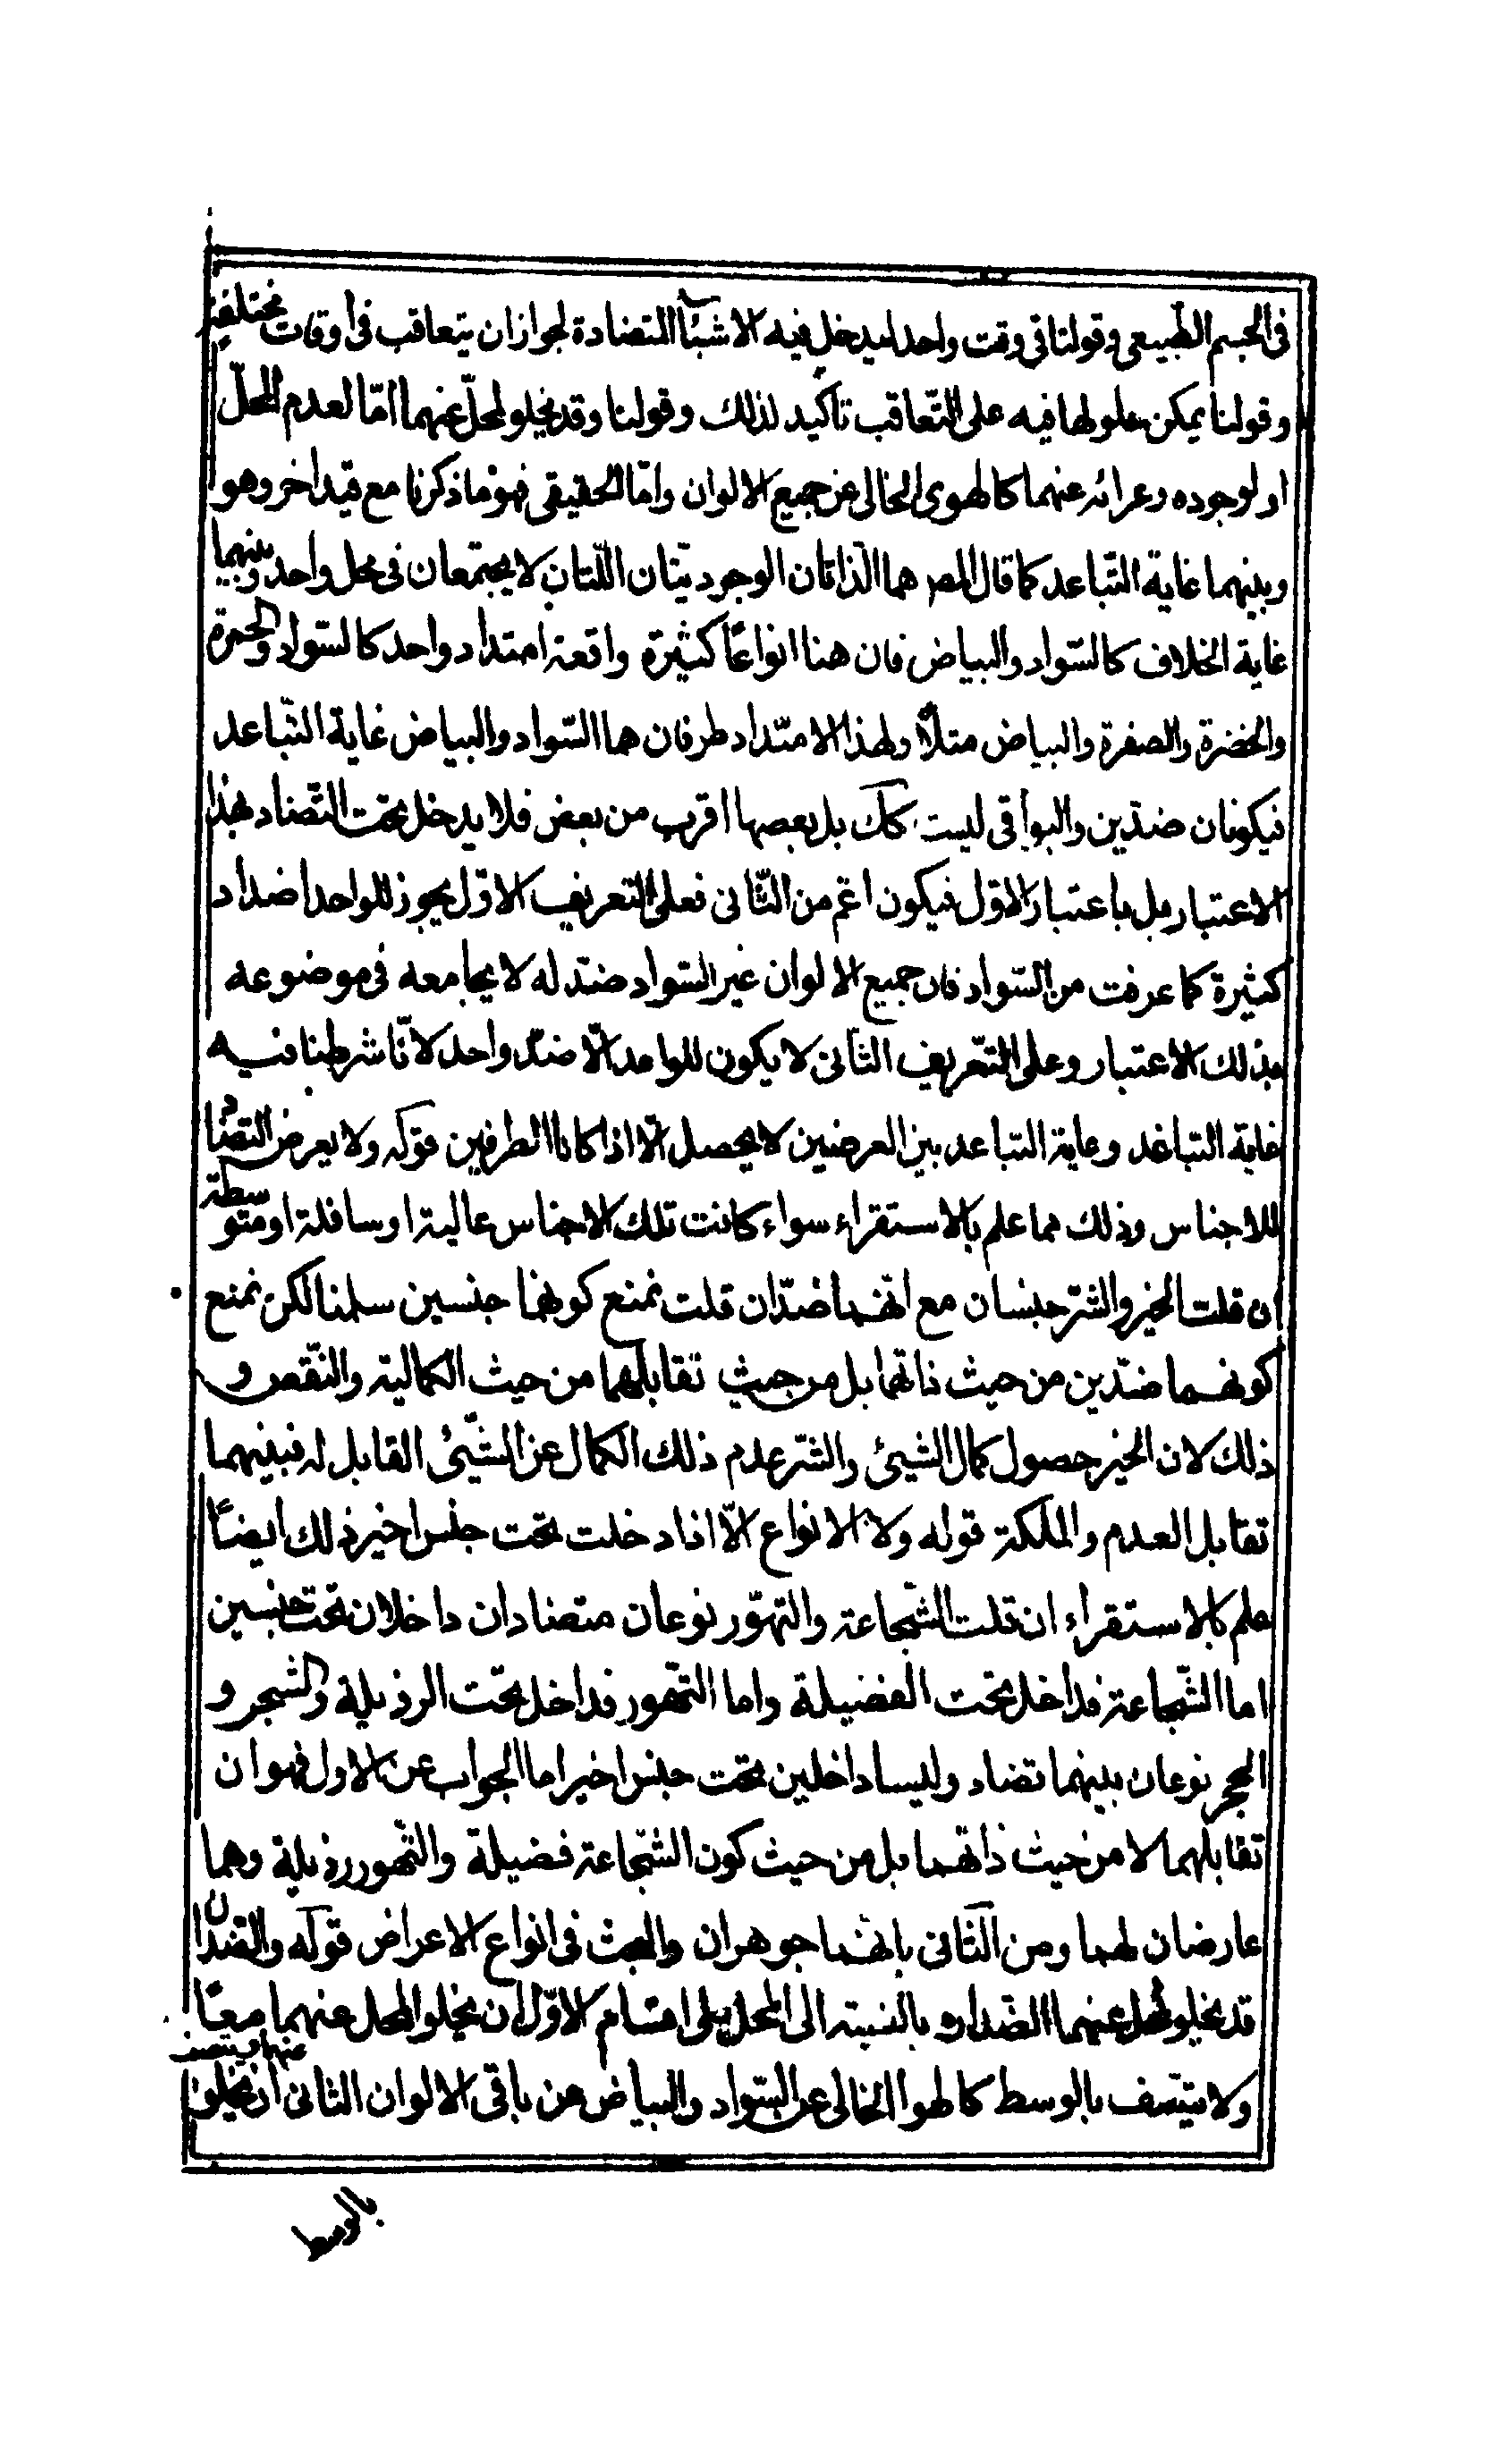 فى الجسم الطّبيعى وقولنا فى وقت واحد ليدخل فيه الاشيئا المتضادة لجواز ان يتعاقب فى أوقات مختلفة
وقولنا يمكن حلولها فيه على التّعاقب تاكيد لذلك وقولنا وقد يخلو المحلّ عنهما امّا لعدم المحلّ
او لوجوده وعرائه عنهما كالهوى الخالى عن جميع الالوان وامّا الحقيقى فهو ما ذكرنا مع قيد اخر وهو
وبينهما غاية التّباعد كما قال المصر هما الذاتان الوجوديّتان اللّتان لا يجتمعان فى محل واحد وبينهما
غاية الخلاف كالسّواد والبياض فان هنا انواعًا كثيرة واقعة امتداد واحد كالسّواد والحمرة
والخضرة والصفرة والبياض مثلًا ولهذا الامتداد طرفان هما السّواد والبياض غاية التّباعد
فيكونان ضدّين والبواقى ليست كك بل بعصها اقرب من بعض فلا يدخل تحت التّضاد بهذا
الاعتبار بل باعتبار الاوّل فيكون اعمّ من الثّانى فعلى التعريف الاوّل يجوز للواحد اضداد
كثيرة كما عرفت من السّواد فان جميع الالوان غير السّواد ضدّ له لا يجامعه فى موضوعه
بذلك الاعتبار وعلى التّعريف الثّانى لا يكون للواحد الّا ضدّ واحد لانّا شرطنا فيه
غاية التباعد وغاية التباعد بين العرضين لا يحصل الّا اذا كانا الطرفين قوله ولا يعرض التضاد
للاجناس وذلك مما علم بالاستقراء سواء كانت تلك الاجناس عالية او سافلة او متوسطة
ان قلت الخير والشرّ جنسان مع انّهما ضدّان قلت نمنع كونهما جنسين سلمنا لكن نمنع
كونهما ضدّين من حيث ذاتهما بل من حيث تقابلهما من حيث الكمالية والنّقص و
ذلك لان الخير حصول كمال الشيئ والشرّ عدم ذلك الكمال عن الشّيئ القابل له فبينهما
تقابل العدم والملكة قوله ولا الانواع الّا اذا دخلت تحت جنس اخير ذلك ايضًا
علم بالاستقراء ان قلت الشّجاعة والتهوّر نوعان متضادان داخلان تحت جنسين
اما الشّجاعة فداخل تحت الفضيلة واما التّهور فداخل تحت الرذيلة والشجر و
الحجر نوعان بينهما تضاد وليسا داخلين تحت جنس اخير اما الجواب عن الاول فهو ان
تقابلهما لا من حيث ذاتهما بل من حيث كون الشّجاعة فضيلة والتّهور رذيلة وهما
عارضان لهما ومن الثّانى بانهما جوهران والبحث فى انواع الاعراض قوله والضدان
قد يخلو المحل عنهما الضدان بالنسبة الى المحل على اقسام الاوّل ان يخلو المحل عنهما معًا
ولا يتّصف بالوسط كالهوا الخالى عن السّواد والبياض عن باقى الالوان الثانى ان يخلو
عنهما ويتصف
بالوسط